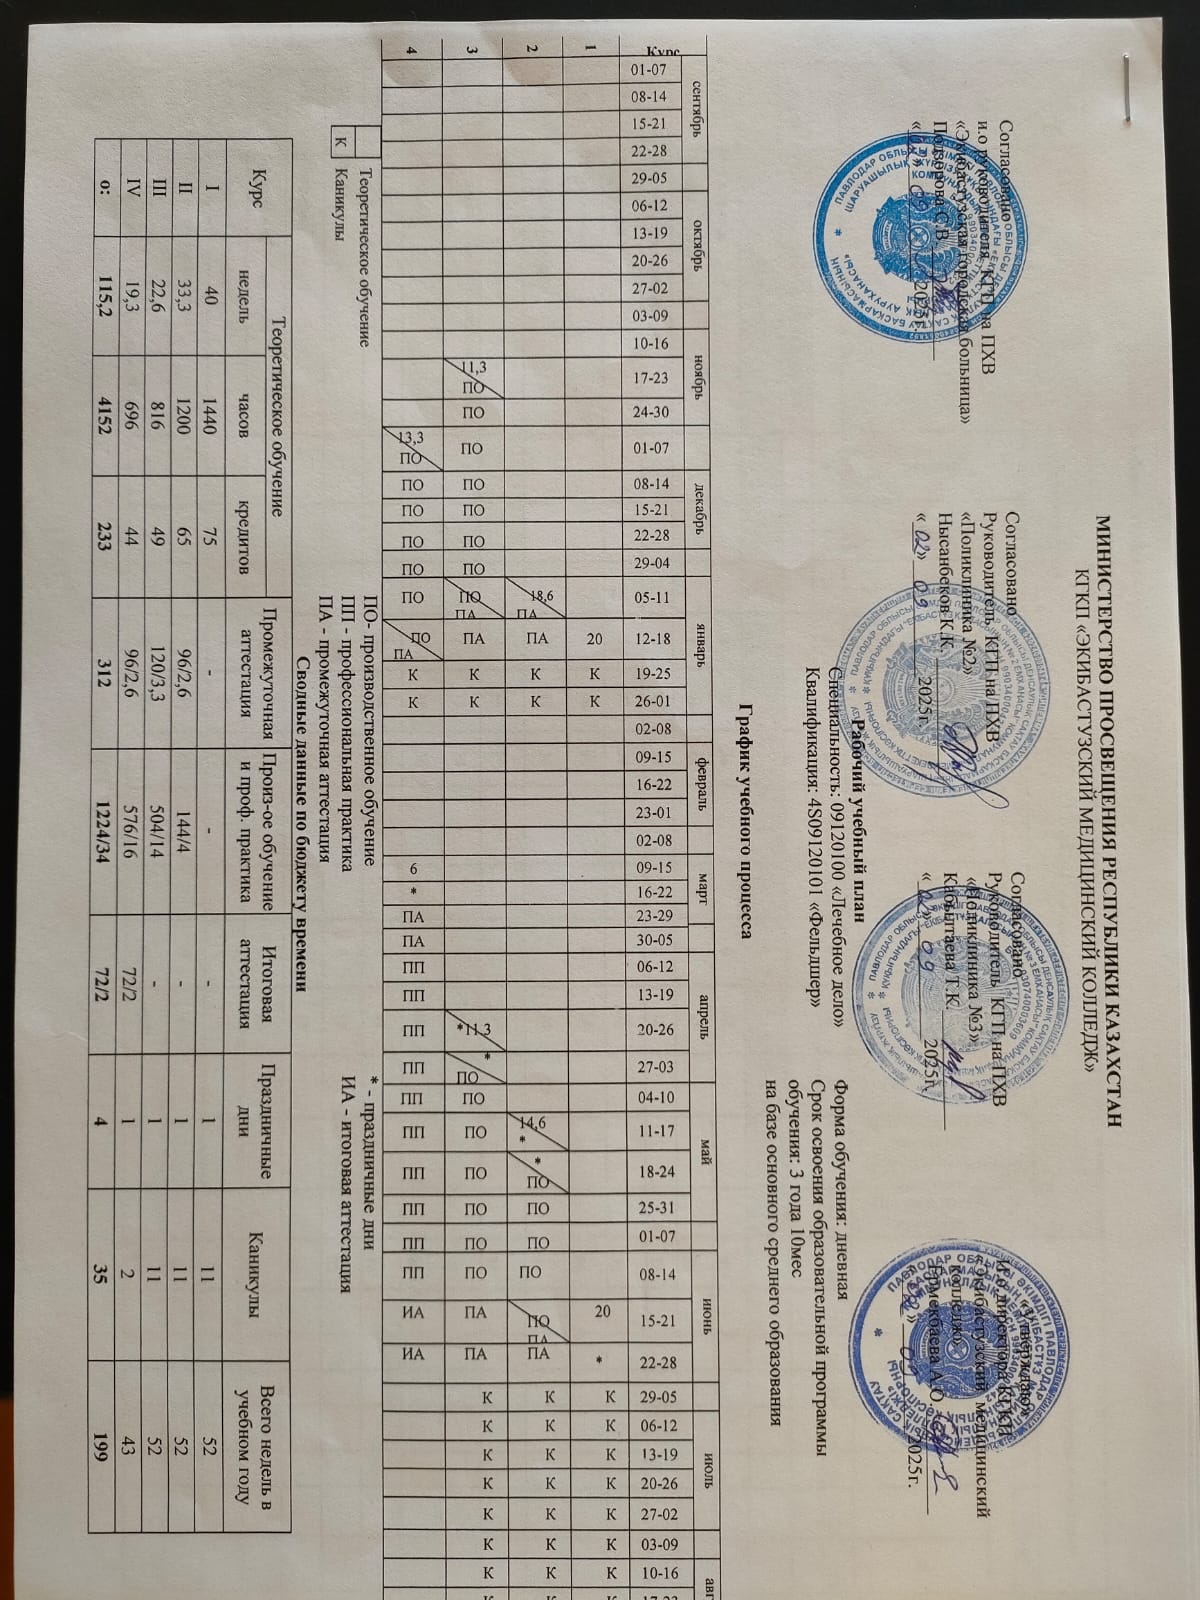 МИНИСТЕРСТВО ПРОСВЕЩЕНИЯ РЕСПУБЛИКИ КАЗАХСТАН
КГКП «ЭКИБАСТУЗСКИЙ МЕДИЦИНСКИЙ КОЛЛЕДЖ»
Согласовано
и.о руководителя КГП на ПХВ
«Экибастузская городская больница»
Подворова С.В.
2025г.
Согласовано
Руководитель КГП на ПХВ
«Поликлиника №2»
Нысанбеков К.К.
«02» 09 2025г.
Согласовано
Руководитель КГП на ПХВ
«Поликлиника №3»
Кабылтаева Т.К.
« » 09 2025г.
«Утверждаю»
И.о директора КГКП
«Экибастузский медицинский
колледж»
Ермекбаева А.О
2025г.
Рабочий учебный план
Специальность: 09120100 «Лечебное дело»
Квалификация: 4S09120101 «Фельдшер»
Форма обучения: дневная
Срок освоения образовательной программы
обучения: 3 года 10мес
на базе основного среднего образования
График учебного процесса
сентябрь октябрь ноябрь декабрь январь февраль март апрель май июнь июль авг
Курс 01-07 08-14 15-21 22-28 29-05 06-12 13-19 20-26 27-02 03-09 10-16 17-23 24-30 01-07 08-14 15-21 22-28 29-04 05-11 12-18 19-25 26-01 02-08 09-15 16-22 23-01 02-08 09-15 16-22 23-29 30-05 06-12 13-19 20-26 27-03 04-10 11-17 18-24 25-31 01-07 08-14 15-21 22-28 29-05 06-12 13-19 20-26 27-02 03-09 10-16 17-23
1 20 К К 20 * К К К К К К К К
2 18,6 ПА ПА К К 14,6 * * ПО ПО ПО ПО ПО ПА ПА К К К К К К К К
3 11,3 ПО ПО ПО ПО ПО ПО ПО ПО ПА ПА К К *11,3 * ПО ПО ПО ПО ПО ПО ПО ПА ПА К К К К К К К К
4 13,3 ПО ПО ПО ПО ПО ПО ПО ПА К К 6 * ПА ПА ПП ПП ПП ПП ПП ПП ПП ПП ПП ПП ИА ИА
Теоретическое обучение
К Каникулы
ПО- производственное обучение
ПП - профессиональная практика
ПА - промежуточная аттестация
* - праздничные дни
ИА - итоговая аттестация
Сводные данные по бюджету времени
Курс Теоретическое обучение Промежуточная аттестация Произ-ое обучение и проф. практика Итоговая аттестация Праздничные дни Каникулы Всего недель в учебном году
недель часов кредитов
I 40 1440 75 - - - 1 11 52
II 33,3 1200 65 96/2,6 144/4 - 1 11 52
III 22,6 816 49 120/3,3 504/14 - 1 11 52
IV 19,3 696 44 96/2,6 576/16 72/2 1 2 43
о: 115,2 4152 233 312 1224/34 72/2 4 35 199